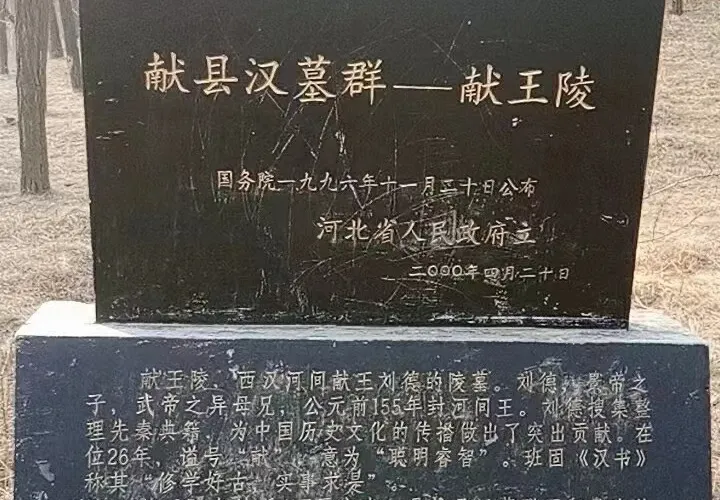 献县汉墓群——献王陵
国务院一九九六年十一月二十日公布
河北省人民政府立
二〇〇〇年四月二十日
献王陵,西汉河间献王刘德的陵墓。刘德,景帝之
子,武帝之异母兄,公元前155年封河间王。刘德搜集整
理先秦典籍,为中国历史文化的传播做出了突出贡献。在
位26年,谥号“献”,意为“聪明睿智”。班固《汉书》
称其“修学好古,实事求是”。